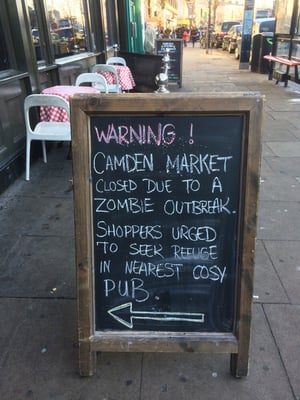 WARNING!
CAMDEN MARKET
CLOSED DUE TO A
ZOMBIE OUTBREAK.
SHOPPERS URGED
TO SEEK REFUGE
IN NEAREST COSY
PUB